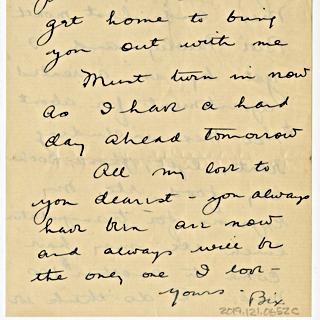 get home to bring
you out with me
Must turn in now
as I have a hard
day ahead tomorrow
All my love to
you dearest - you always
have been are now
and always will be
the only one I love -
yours - Bix
2019.121.0652C